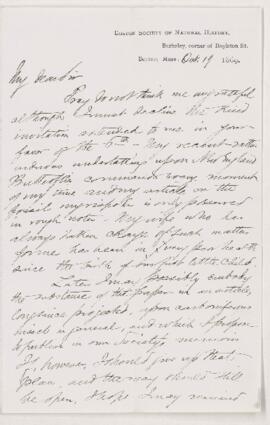 BOSTON SOCIETY OF NATURAL HISTORY,
Berkeley, corner of Boylston St.
Boston, Mass. Oct. 19 1889.
My dear Sir
Pray do not think me ungrateful
although I must decline the kind
invitation extended to me in your
favor of the 6th. My recent rather
arduous undertaking upon New England
Butterflies commands every moment
of my time and my article on the
fossil myriapods is only preserved
in rough notes. My wife who has
always taken charge of such matters
for me has been in very poor health
since the birth of our first little child.
Later I may possibly embody
the substance of the paper in an article,
long since projected, upon carboniferous
insects in general, and which I propose
to publish in our Society's memoirs
If, however, I should give up that
plan, and the way should still
be open, I hope I may